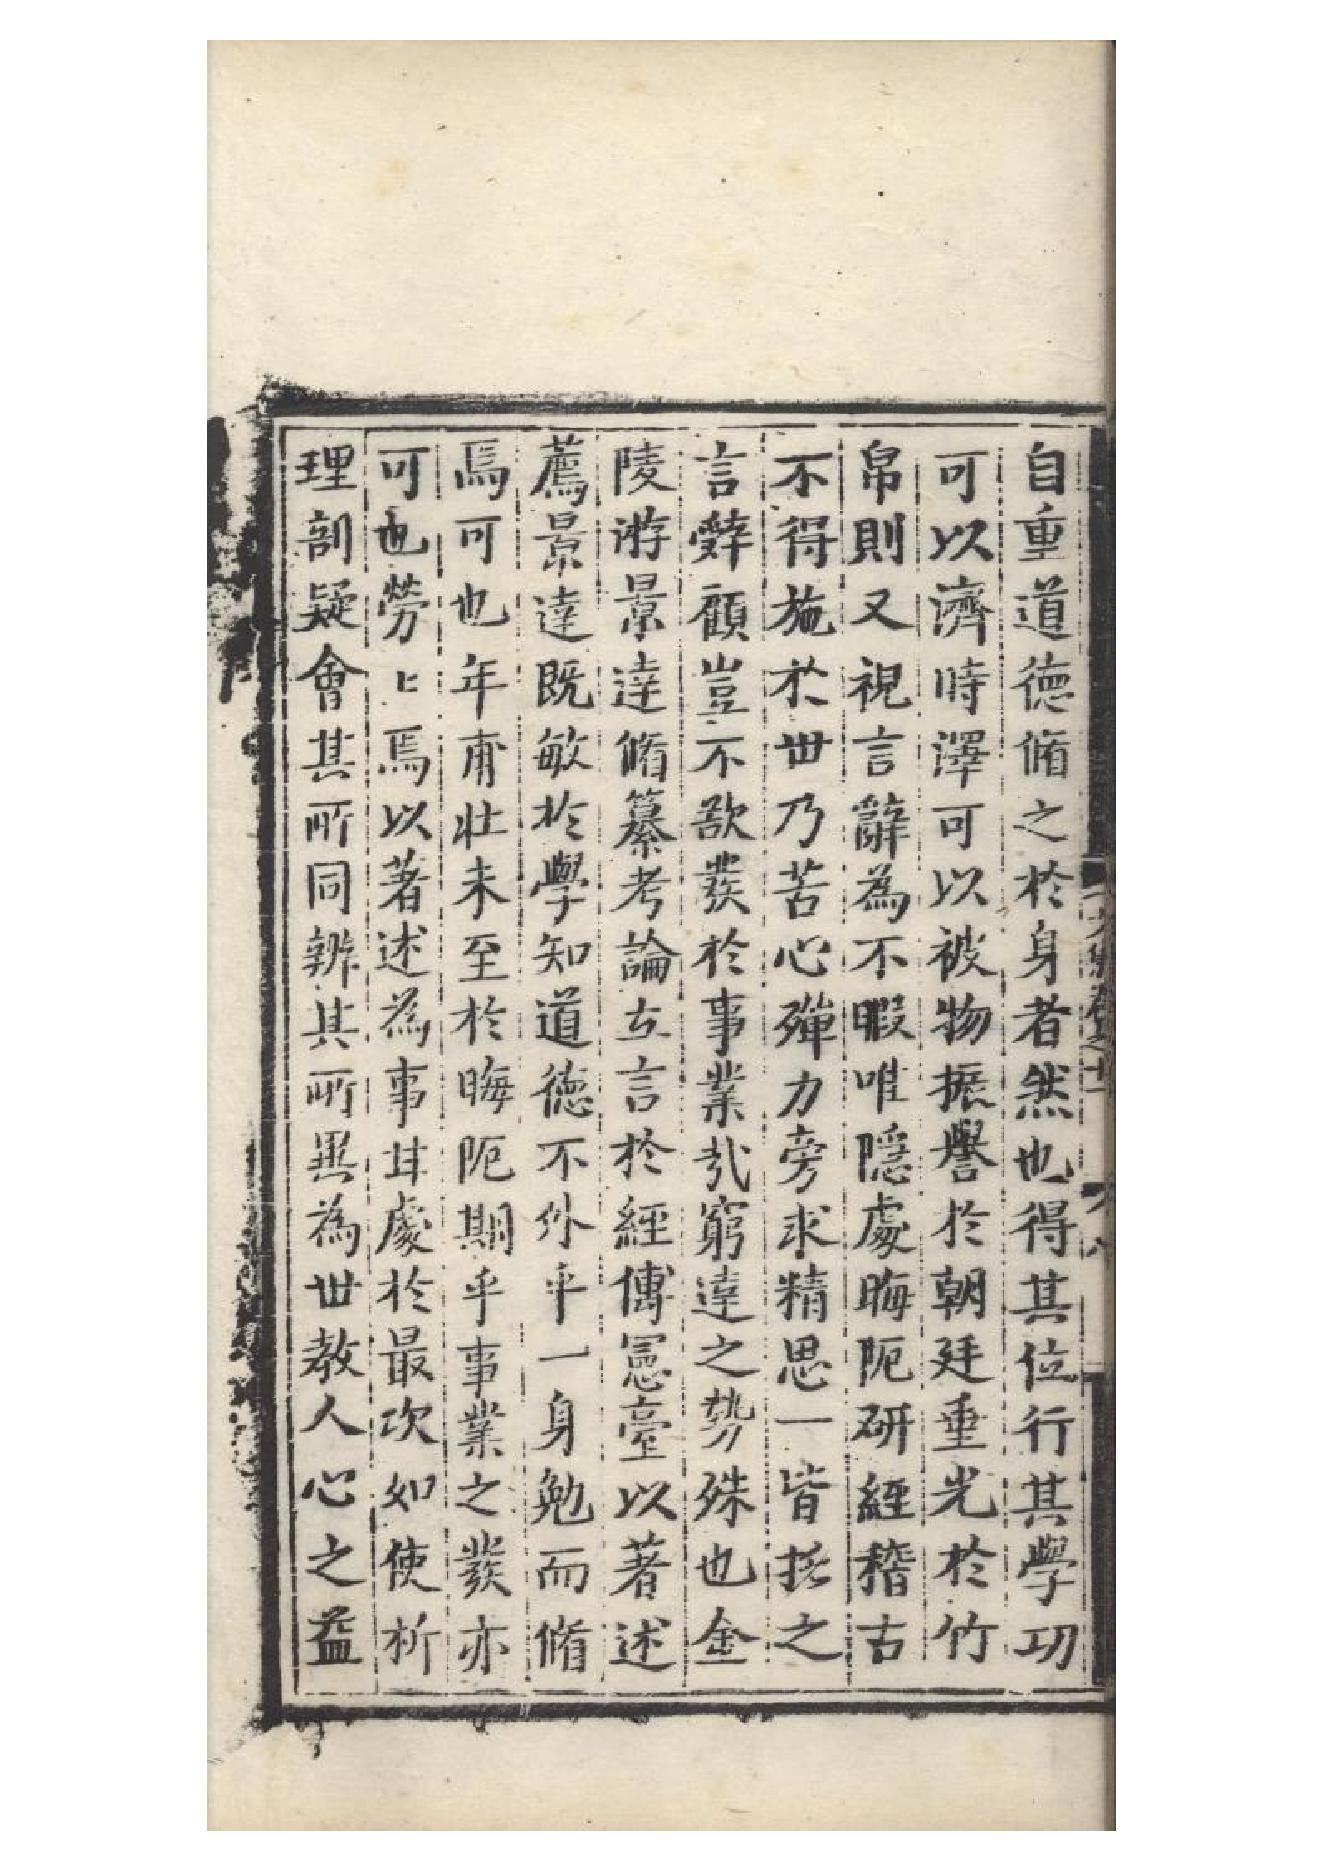 自重道德脩之於身者然也得其位行其學功
可以濟時澤可以被物振譽於朝廷垂光於竹
帛則又視言辭為不暇唯隱處晦阨研經稽古
不得施於世乃苦心殫力旁求精思一皆採之
言辭顧豈不欲發於事業哉窮達之勢殊也金
陵游景達脩纂考論立言於經傳憲臺以著述
薦景達既敏於學知道德不外乎一身勉而脩
焉可也年甫壯未至於晦阨期乎事業之發亦
可也勞〻焉以著述為事其處於最次如使析
理剖疑會其所同辨其所異為世教人心之益